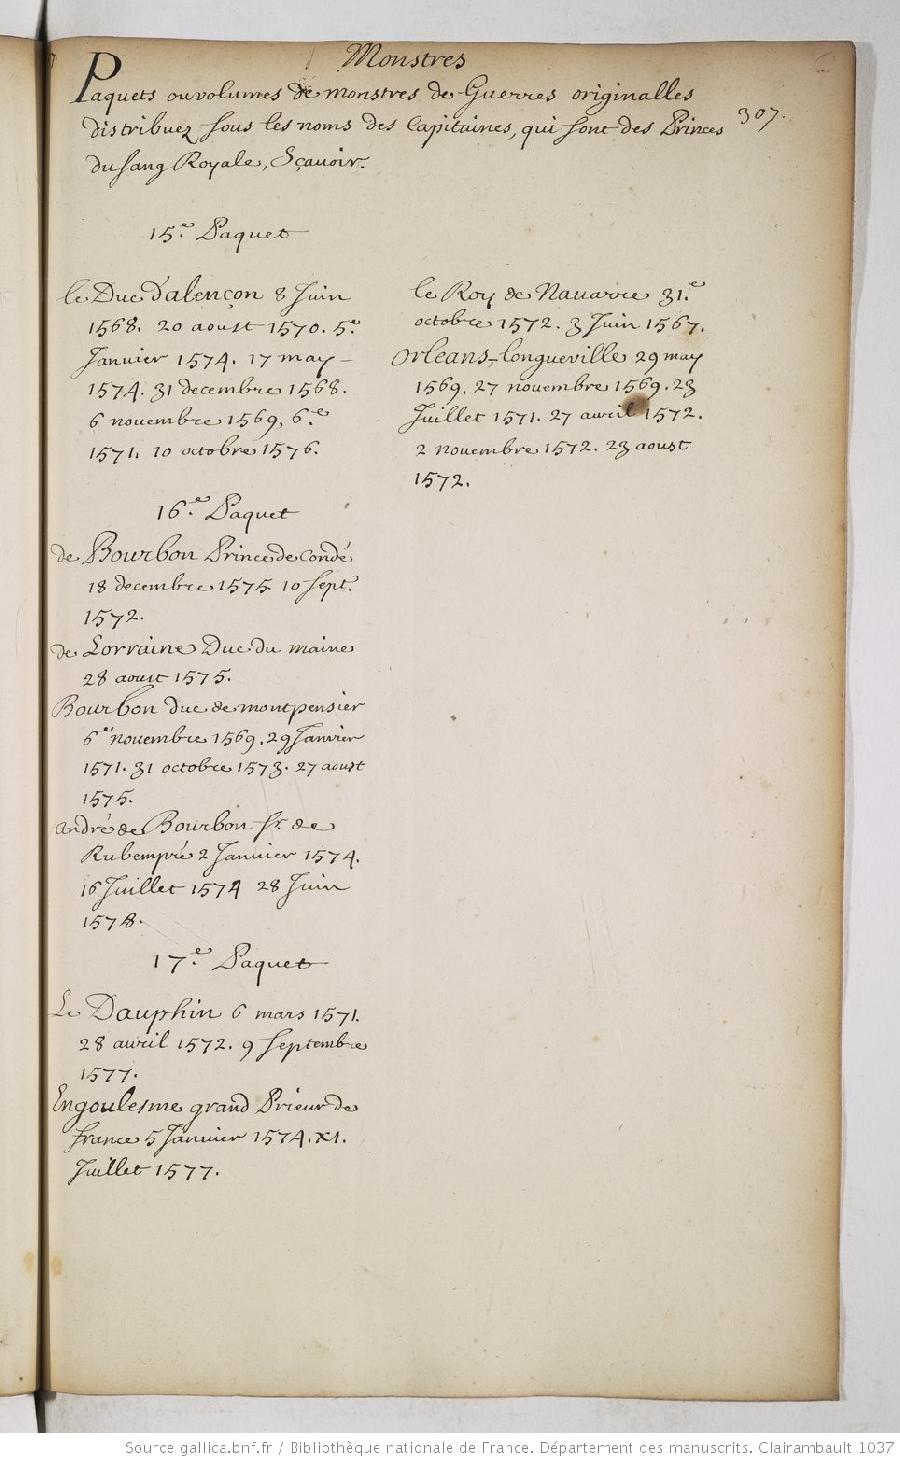 Monstres
Paquets ou volumes de monstres de Guerres originalles
distribuez sous les noms des Capitaines, qui sont des Princes
307.
du sang Royale, Sçavoir.
15.e Paquet
le Duc d'alençon 8 Juin
1568. 20 aoust 1570. 5.e
Janvier 1574. 17 may -
1574. 31 decembre 1568.
6 novembre 1569, 6.e
1571. 10 octobre 1576.
le Roy de Navarre 31.e
octobre 1572. 3 Juin 1567.
Orleans-longueville 29 may
1569. 27 novembre 1569. 23
Juillet 1571. 27 avril 1572.
2 novembre 1572. 23 aoust
1572.
16.e Paquet
de Bourbon Prince de Condé
18 decembre 1575. 10 Sept.
1572.
de Lorraine Duc du maine
28 aoust 1575.
Bourbon duc de montpensier
6.e novembre 1569. 29 Janvier
1571. 31 octobre 1573. 27 aoust
1575.
andré de Bourbon Sr. de
Rubempré 2 Janvier 1574.
16 Juillet 1574 28 Juin
1578.
17.e Paquet
Le Dauphin 6 mars 1571.
28 avril 1572. 9 Septembre
1577.
Engoulesme grand Prieur de
france 5 Janvier 1574. xi.
Juillet 1577.
Source gallica.bnf.fr / Bibliothèque nationale de France. Département des manuscrits. Clairambault 1037